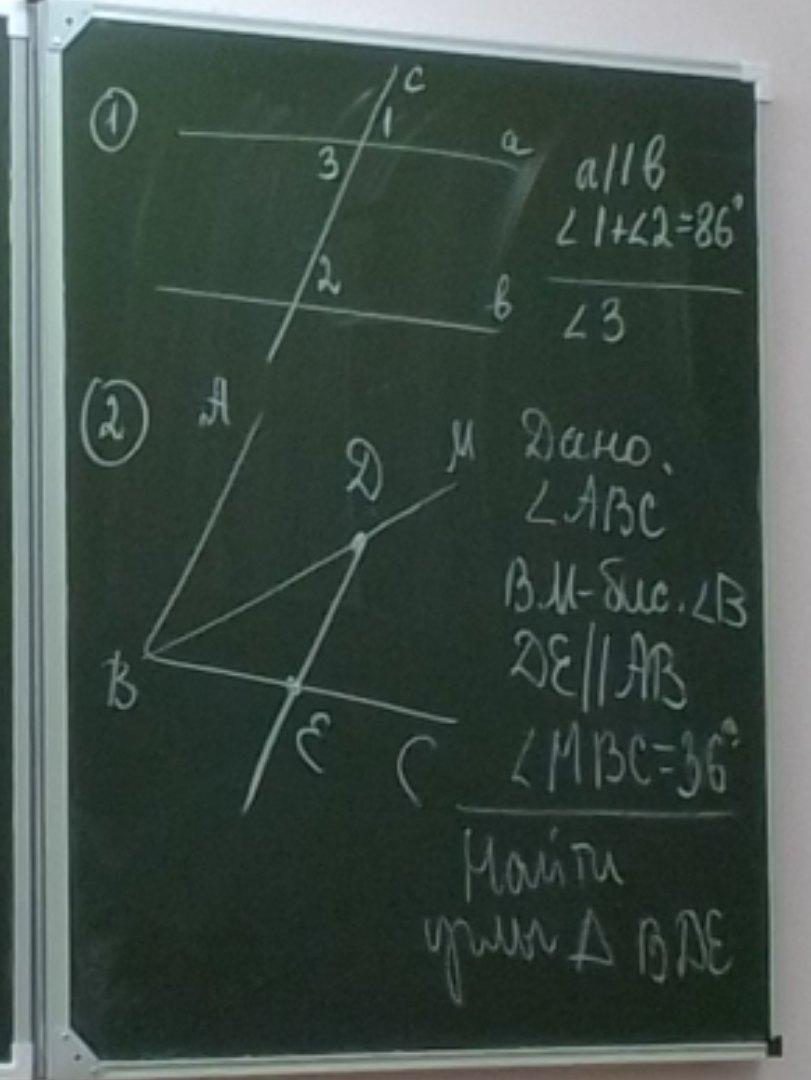 1
c
1
a
3
2
b
a||b
∠1+∠2=86°
∠3
2
A
D
M
B
E
C
Дано.
∠ABC
BM-бис.∠B
DE||AB
∠MBC=36°
Найти
углы Δ BDE